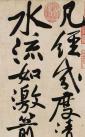 凡經幾度清
水流如激箭